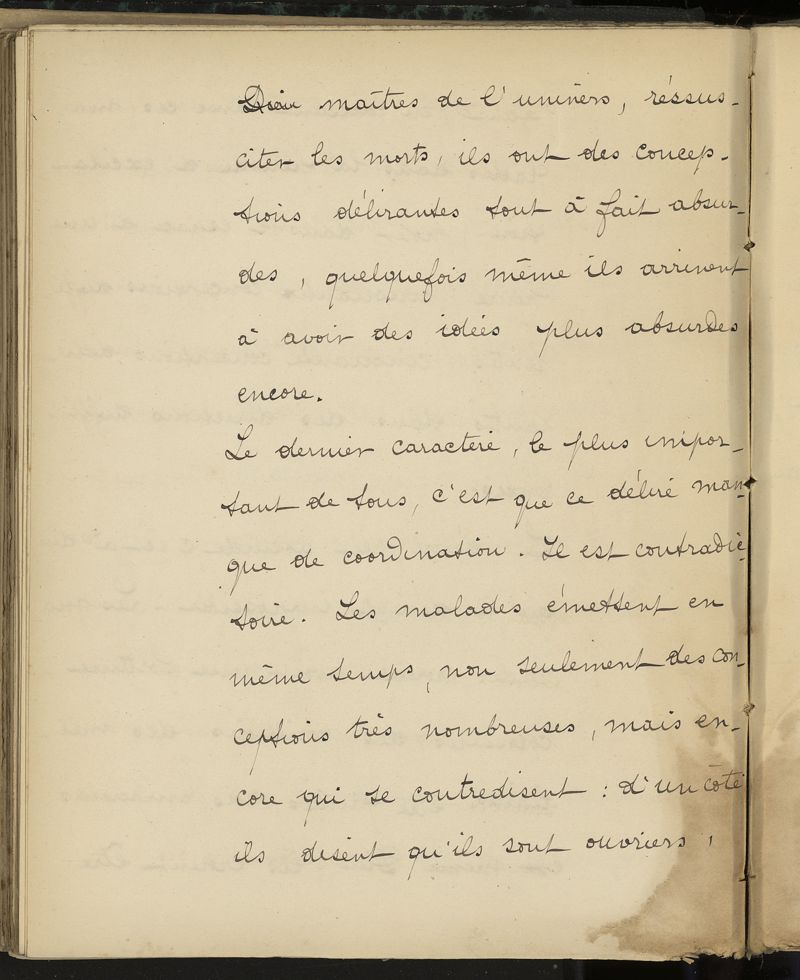 Dieu maîtres de l'univers, réssus-
citer les morts, ils ont des concep-
tions délirantes tout à fait absur-
des, quelquefois même ils arrivent
à avoir des idées plus absurdes
encore.
Le dernier caractère, le plus impor-
tant de tous, c'est que ce délire man-
que de coordination. Il est contradic-
toire. Les malades émettent en
même temps, non seulement des con-
ceptions très nombreuses, mais en-
core qui se contredisent : d'un côté
ils disent qu'ils sont ouvriers,